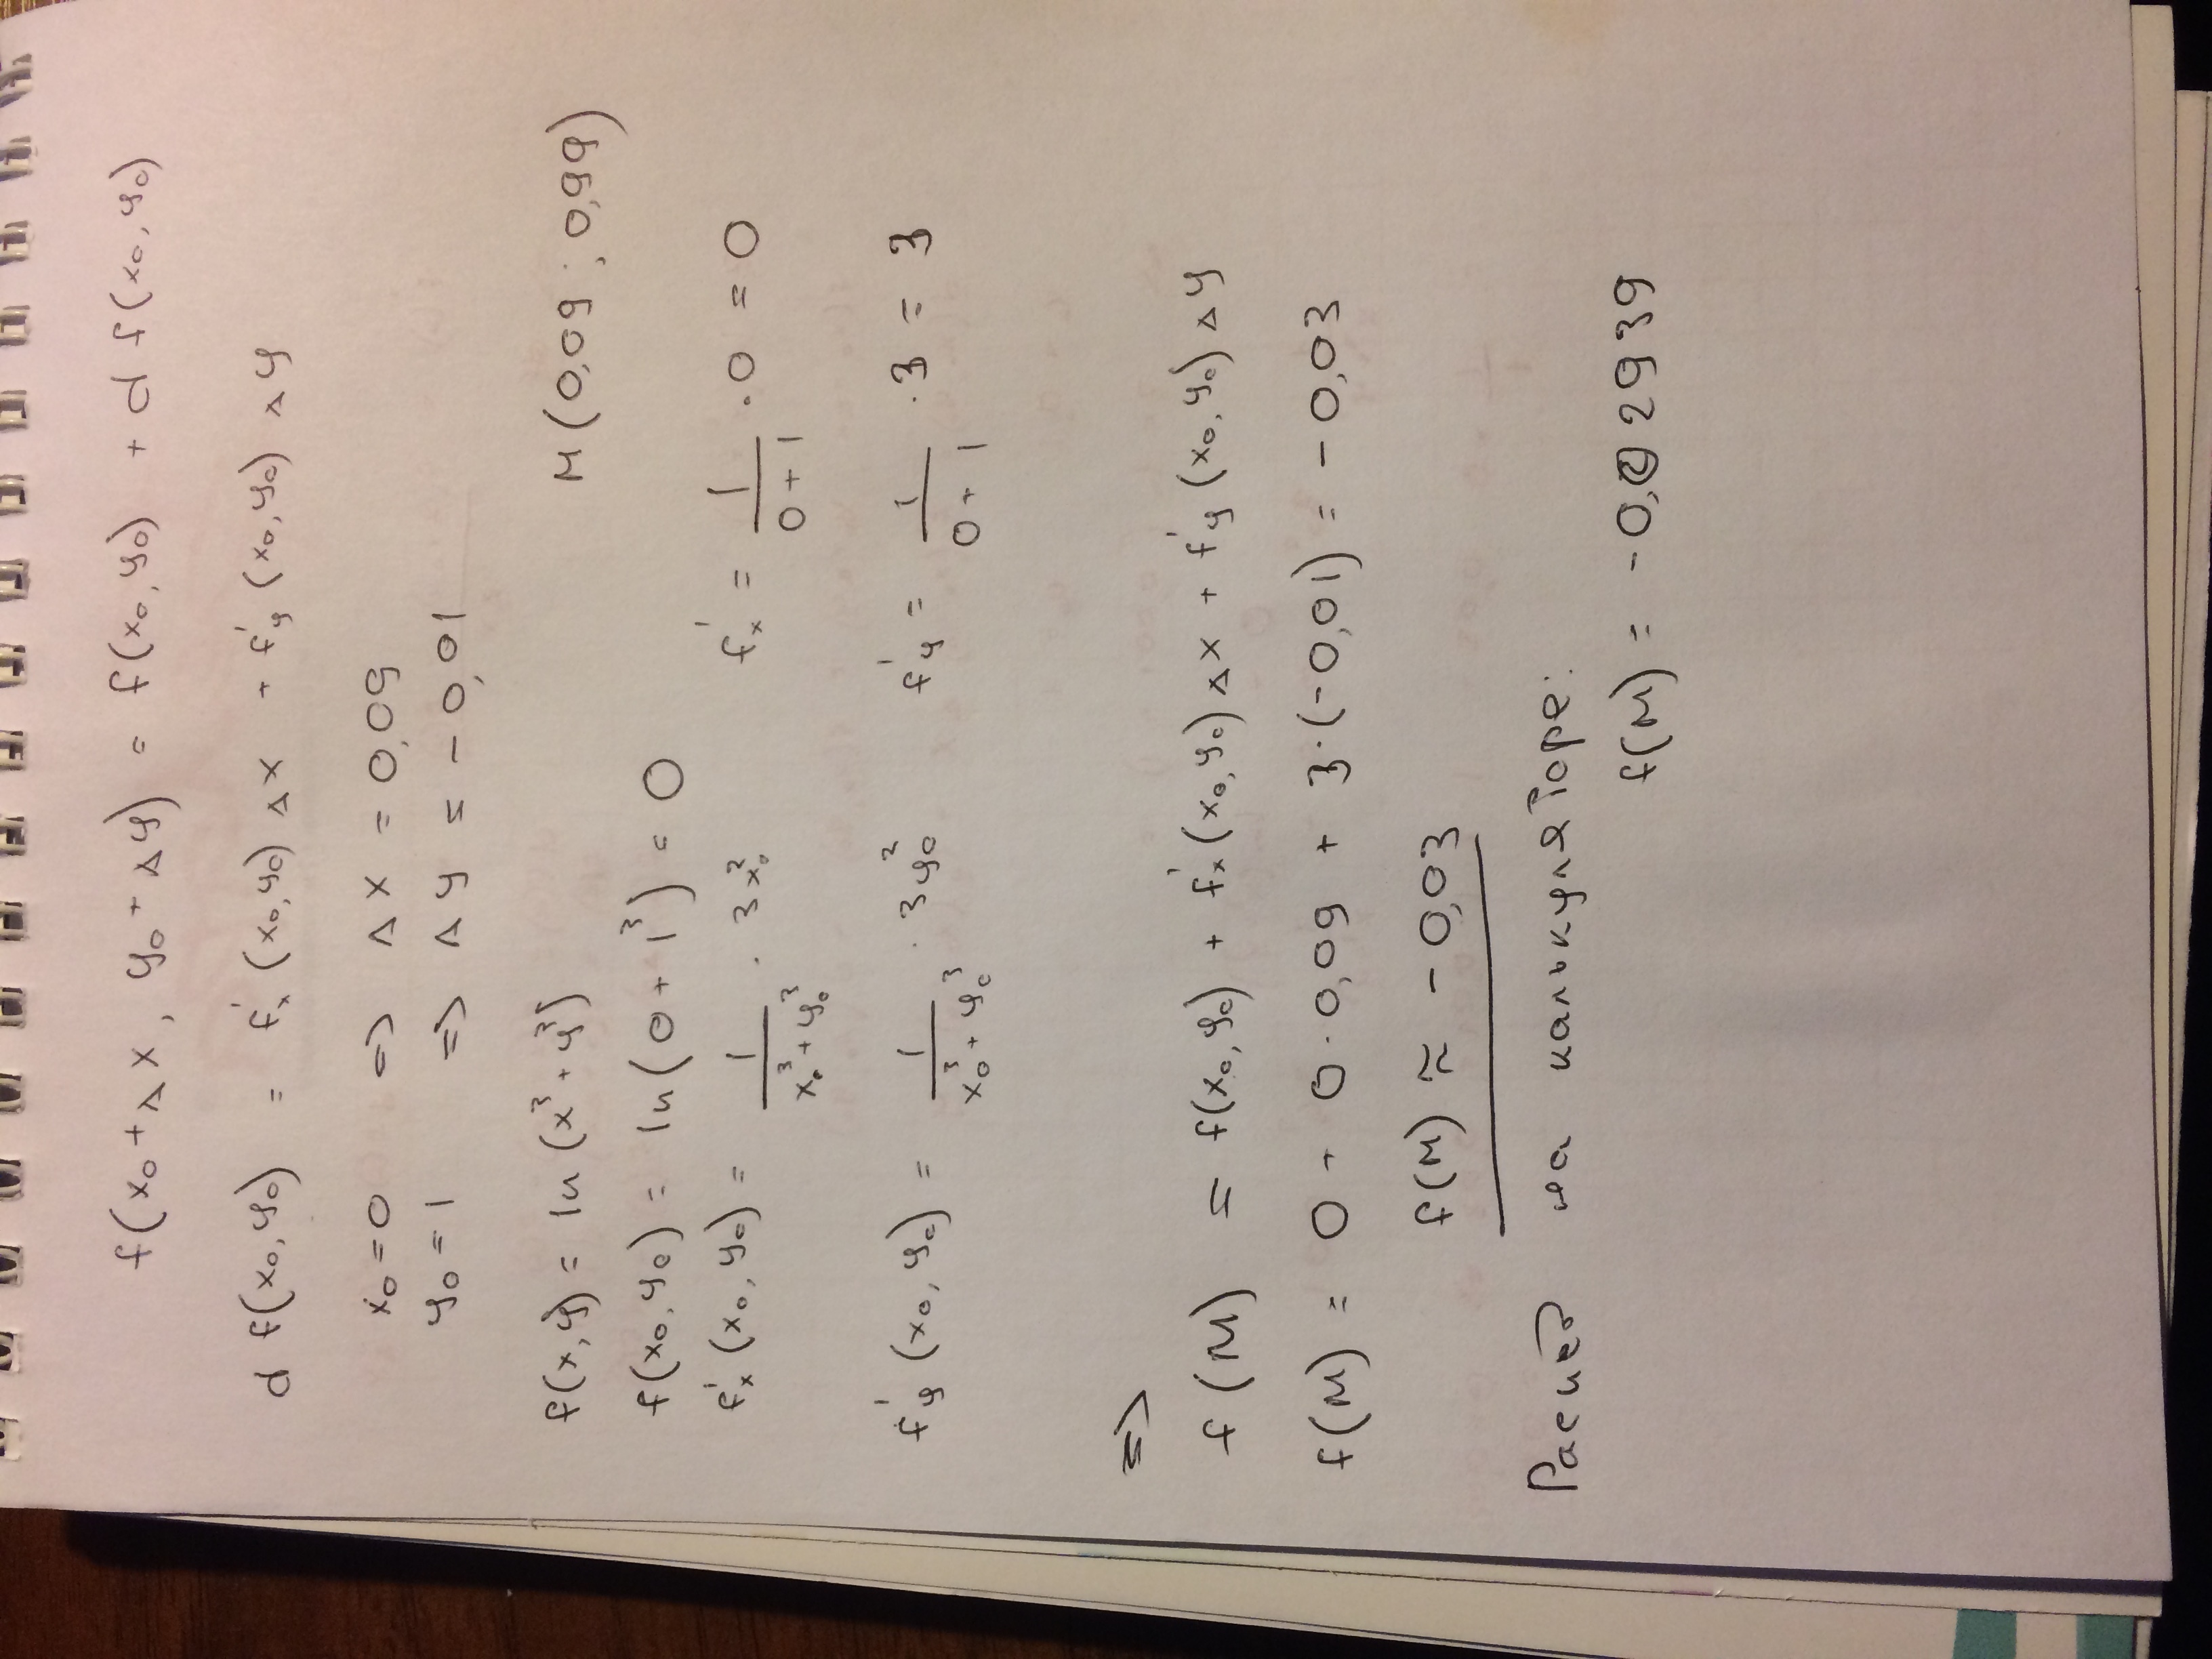 f(x₀+Δx, y₀+Δy) = f(x₀,y₀) + d f(x₀,y₀)
d f(x₀,y₀) = f'ₓ(x₀,y₀)Δx + f'y(x₀,y₀)Δy
x₀=0 => Δx = 0,09
y₀=1 => Δy = -0,01
f(x,y) = ln(x³+y³) M(0,09; 0,99)
f(x₀,y₀) = ln(0+1³) = 0
f'ₓ(x₀,y₀) = 1/(x₀³+y₀³) · 3x₀² f'ₓ = 1/(0+1) · 0 = 0
f'y(x₀,y₀) = 1/(x₀³+y₀³) · 3y₀² f'y = 1/(0+1) · 3 = 3
=>
f(M) = f(x₀,y₀) + f'ₓ(x₀,y₀)Δx + f'y(x₀,y₀)Δy
f(M) = 0 + 0·0,09 + 3·(-0,01) = -0,03
f(M) ≈ -0,03
на калькуляторе:
f(M) = -0,02939